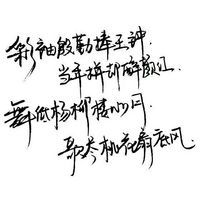 彩袖殷勤捧玉钟.
当年拚却醉颜红.
舞低杨柳楼心月.
歌尽桃花扇底风.